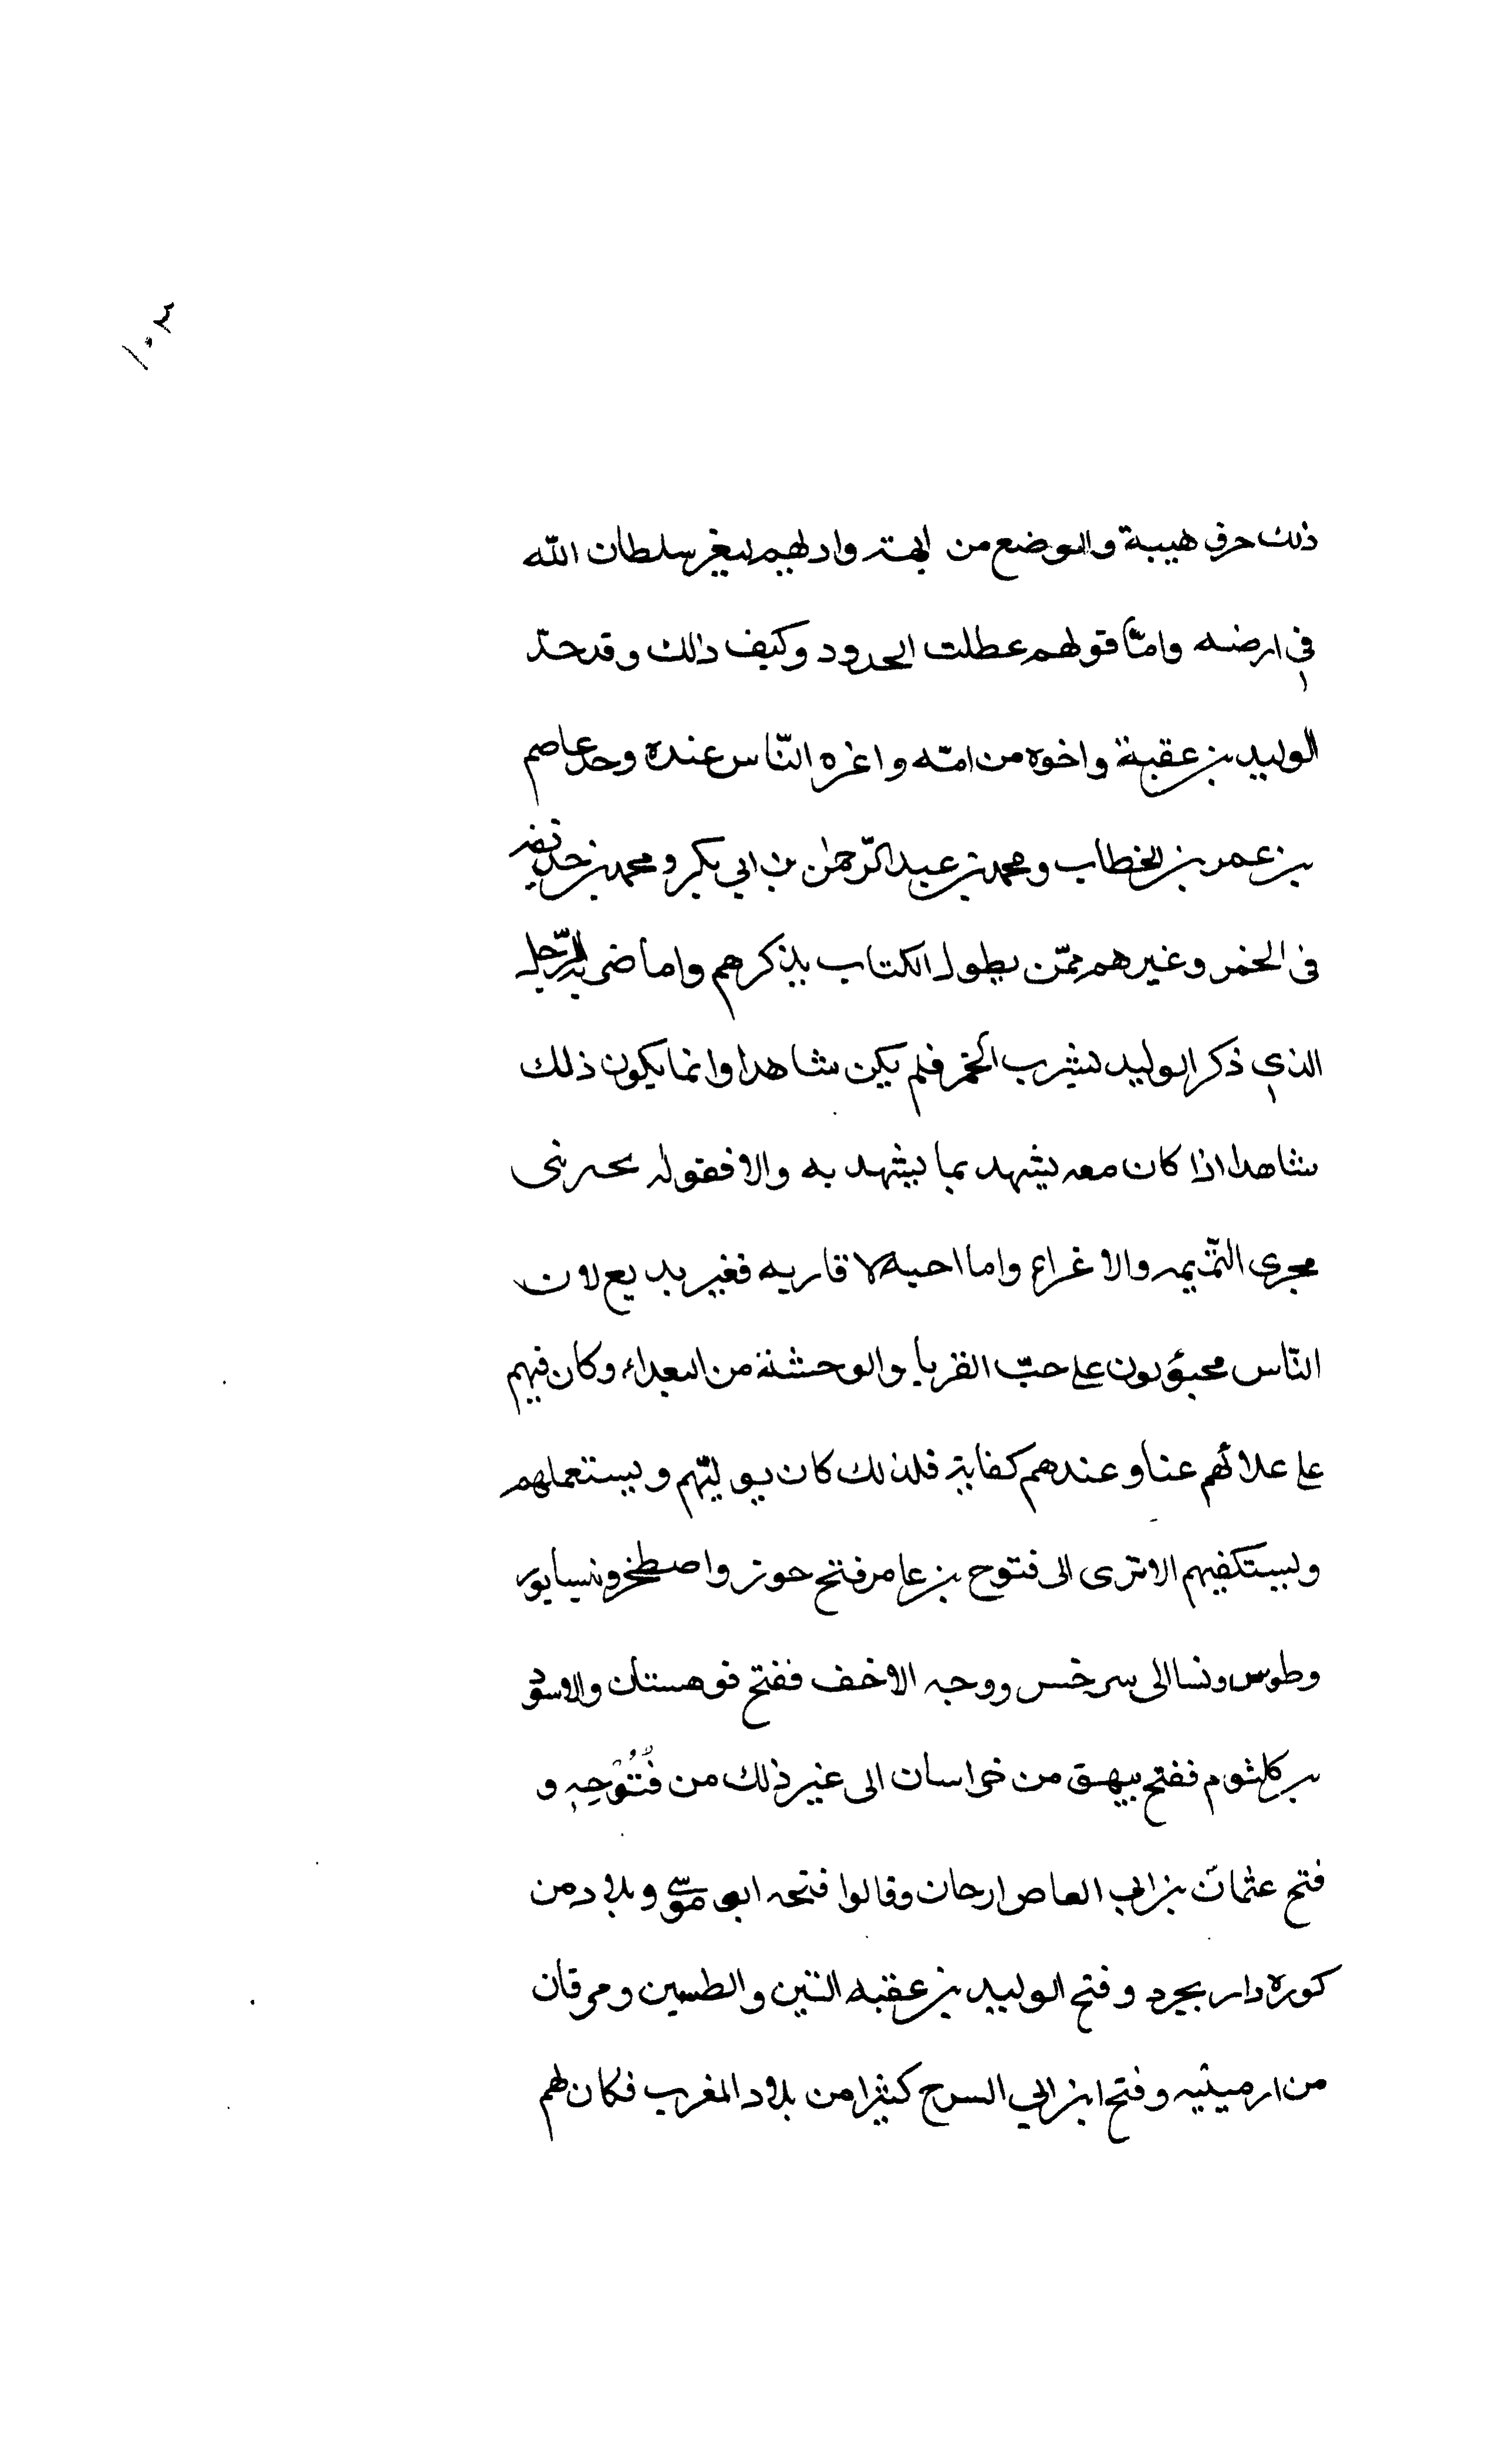 ١٠٣
ذلك حرق هيبة والوضع من ابهته وادلهم لغير سلطان الله
في ارضه وامّا قولهم عطلت الحدود وكيف ذالك وقد حدّ
الوليد بن عقبة واخوه من امّه واغره النّاس عنده وحد عاصم
بن عمر بن الخطاب ومحمد بن عبد الرّحمٰن بن ابي بكر ومحمد بن حذيفه
في الخمر وغيرهم ممّن يطول الكتاب بذكرهم واما ضربه الرّجل
الذي ذكر الوليد بشرب الخمر فلم يكن شاهدا وانما يكون ذلك
شاهدا اذا كان معه يشهد بما يشهد به والا فقوله
مجرى النّميمه والاغراء واما احبه لاقاربه فغير بديع لان
النّاس على حبّ القربا والوحشة من البعداء وكان فيهم
على علاتهم عنا وعندهم كفاية فلذلك كان يوليّهم ويستعملهم
ويستكفيهم الا ترى الى فتوح بن عامر فتح جور واصطخر ونيسابور
وطوس ونسا الى سرخس ووجه الاخف ففتح قوهستان والاسود
بن كلثوم ففتح بيهق من خراسان الى غير ذلك من فُتُوْحِهِ و
فتح عثمان بن ابي العاص ارجان وقالوا فتحه ابو موسى وبلاد من
كوره دار بجرد وفتح الوليد بن عقبه التين والطسين ومرقان
من ارمينيه وفتح ابن ابي السرح كثيرا من بلاد المغرب فكان لهم